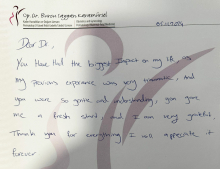 Op. Dr. Burcu Saygan Karamürsel
Dear Dr,
You Have Had the biggest impact on my life as
my previous experience was very traumatic, and
you were so gentle and understanding, you gave
me a fresh start, and I am very grateful,
Thank you for everything, I will appreciate it
forever